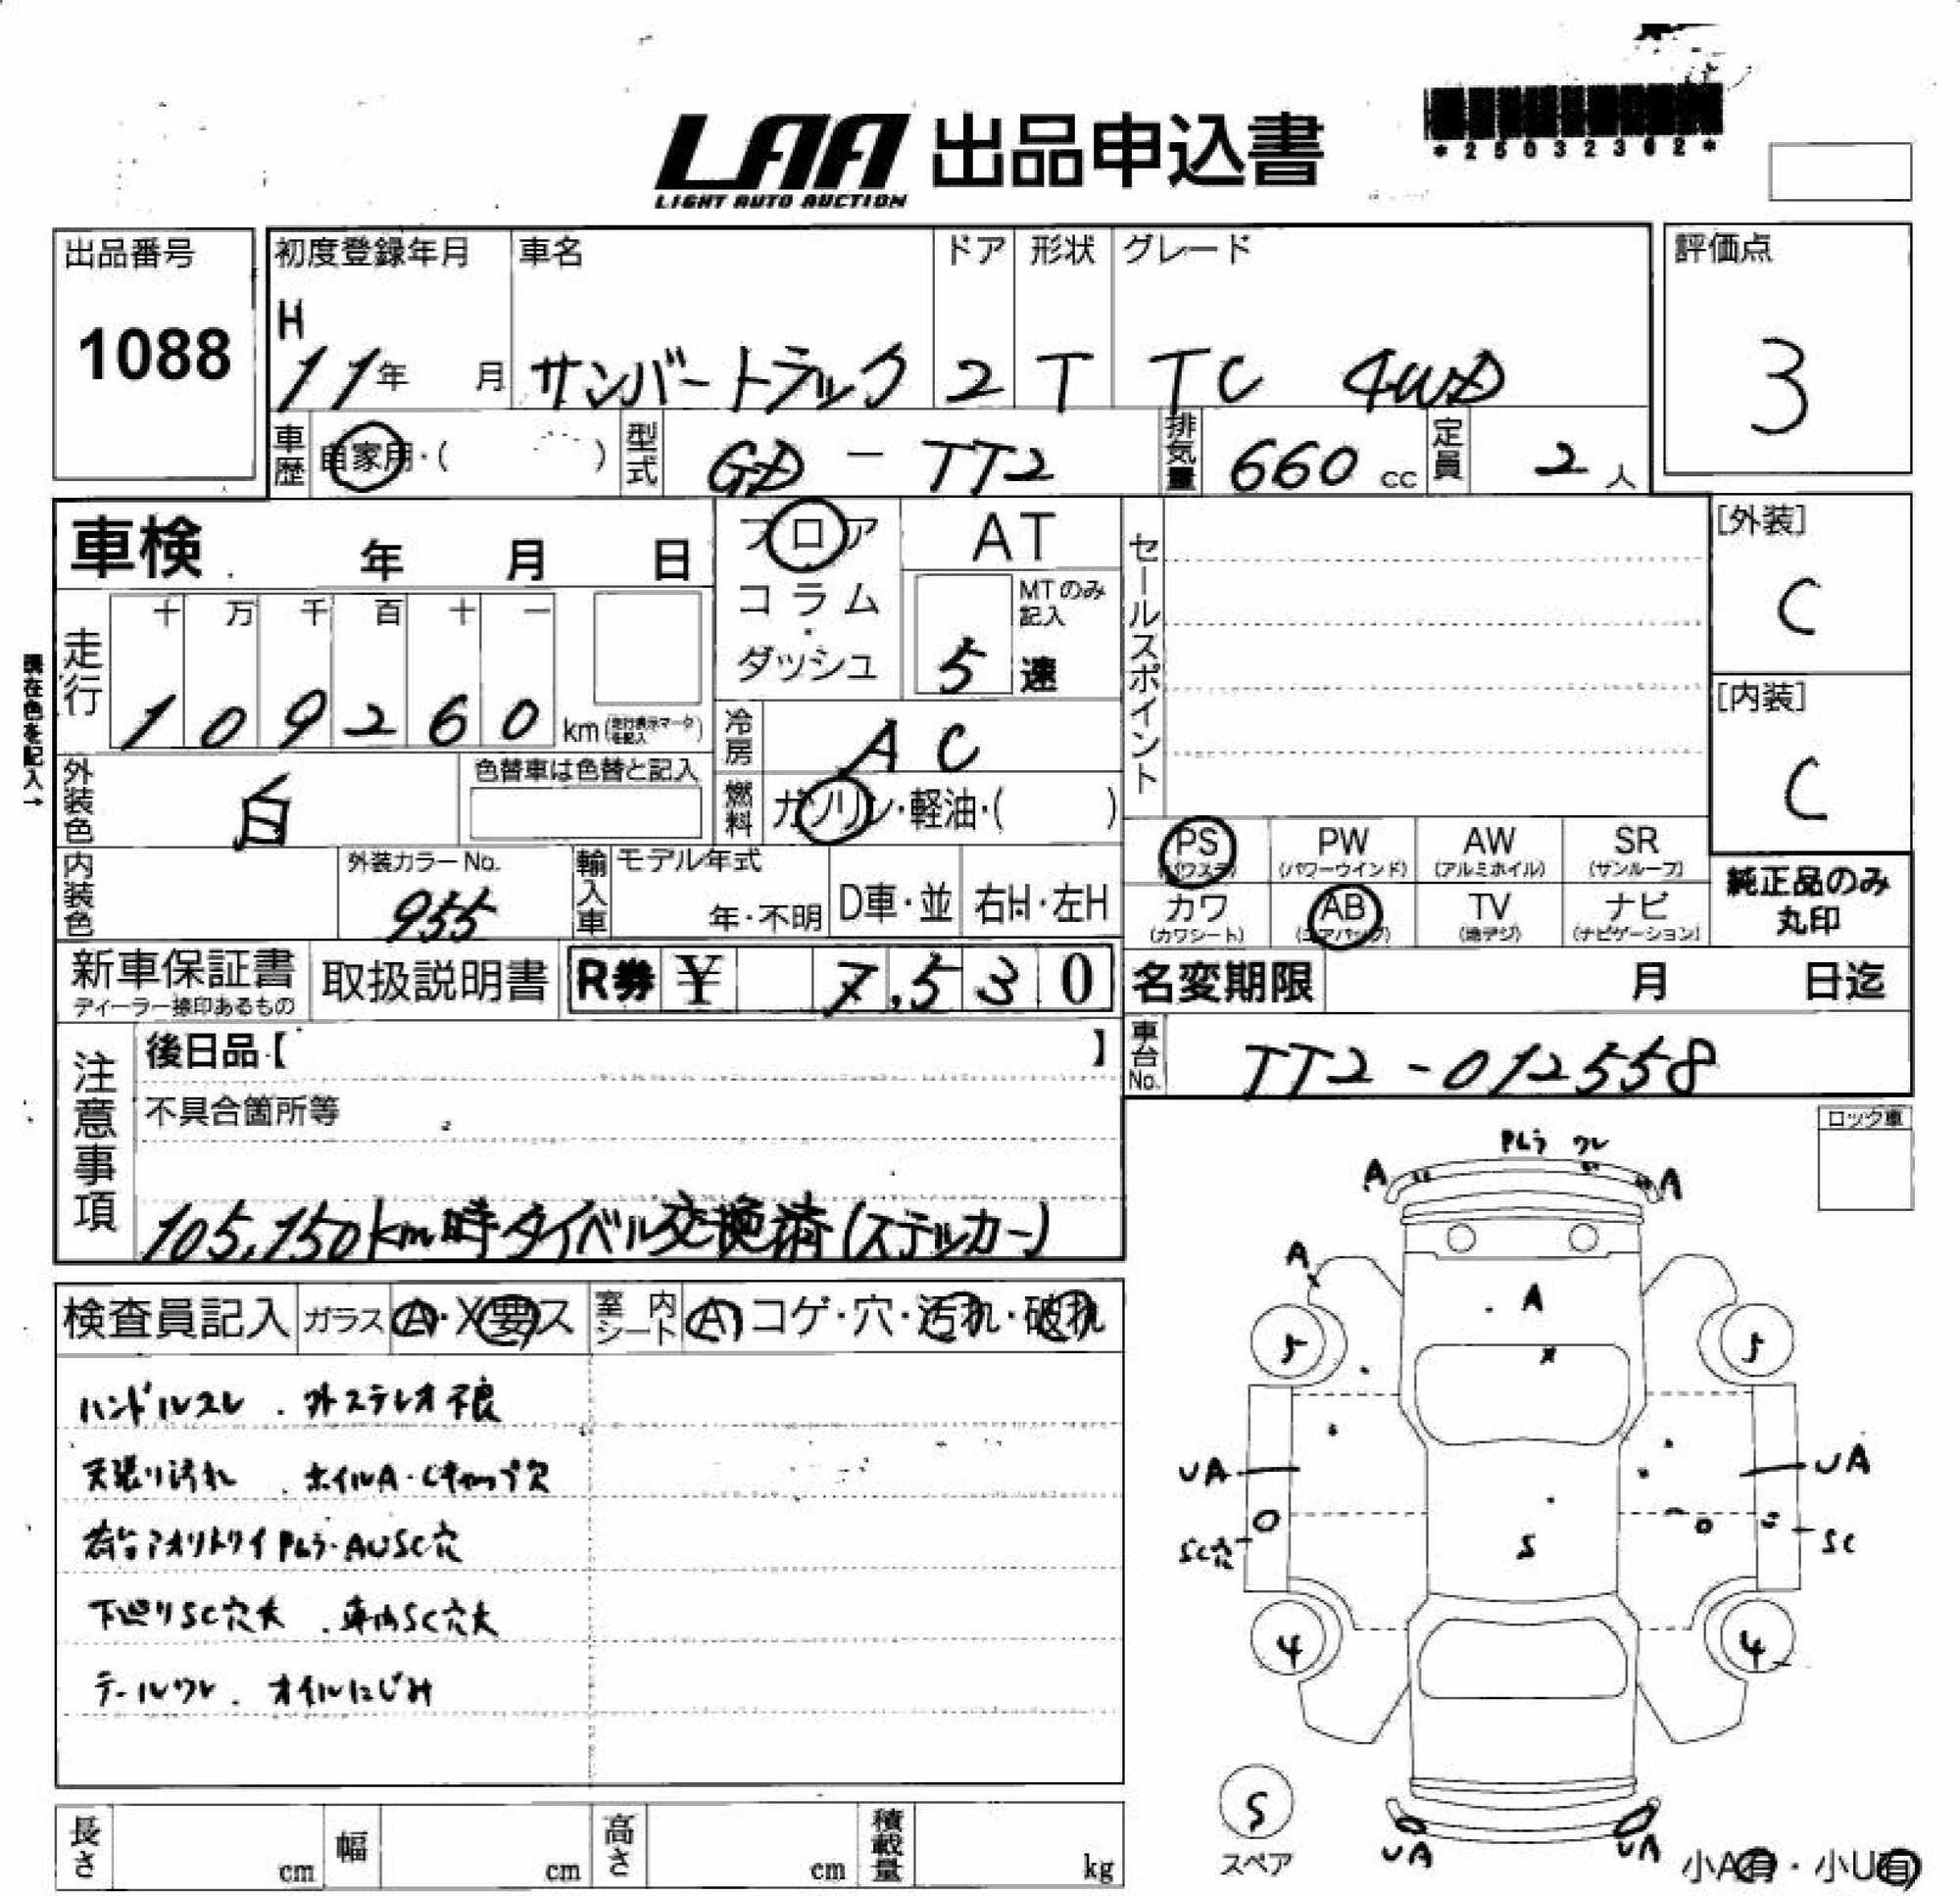 *25032302*
LAA 出品申込書
LIGHT AUTO AUCTION
出品番号 初度登録年月 車名 ドア 形状 グレード 評価点
1088 H 11年 月 サンバートラック 2 T TC 4WD 3
車歴 自家用・( ) 型式 GD-TT2 排気量 660cc 定員 2人
車検 年 月 日 フロア AT セールスポイント [外装]
コラム・ MTのみ記入 C
ダッシュ 5速
現在色を記入→
走行 十 万 千 百 十 一
1 0 9 2 6 0 km (走行表示マークを記入)
冷房 AC [内装]
外装色 白 色替車は色替と記入 燃料 ガソリン・軽油・( ) C
PS (パワステ) PW (パワーウインド) AW (アルミホイル) SR (サンルーフ)
内装色 外装カラーNo. 955 輸入車 モデル年式 年・不明 D車・並 右H・左H
カワ (カワシート) AB (エアバッグ) TV (地デジ) ナビ (ナビゲーション)
純正品のみ
丸印
新車保証書 取扱説明書 R券 ¥ 7,530 名変期限 月 日迄
ディーラー捺印あるもの
車台No. TT2-012558
注意事項 後日品【 】
不具合箇所等
105,150km時タイベル交換済(ステッカー)
ロック車
検査員記入 ガラス A・X要ス 室内シート A コゲ・穴・汚れ・破れ
ハンドルスレ . 外ステレオ不良
天張り汚れ . ホイルA・Cキャップ欠
荷台アオリトリイPLラ・AUSC穴
下廻りSC穴大 . 車内SC穴大
テールワレ . オイルにじみ
PLラ ワレ
A A
A
A
5 5
UA UA
SC穴 S SC
4 4
S
スペア
UA UA
小A有・小U有
長さ cm 幅 cm 高さ cm 積載量 kg